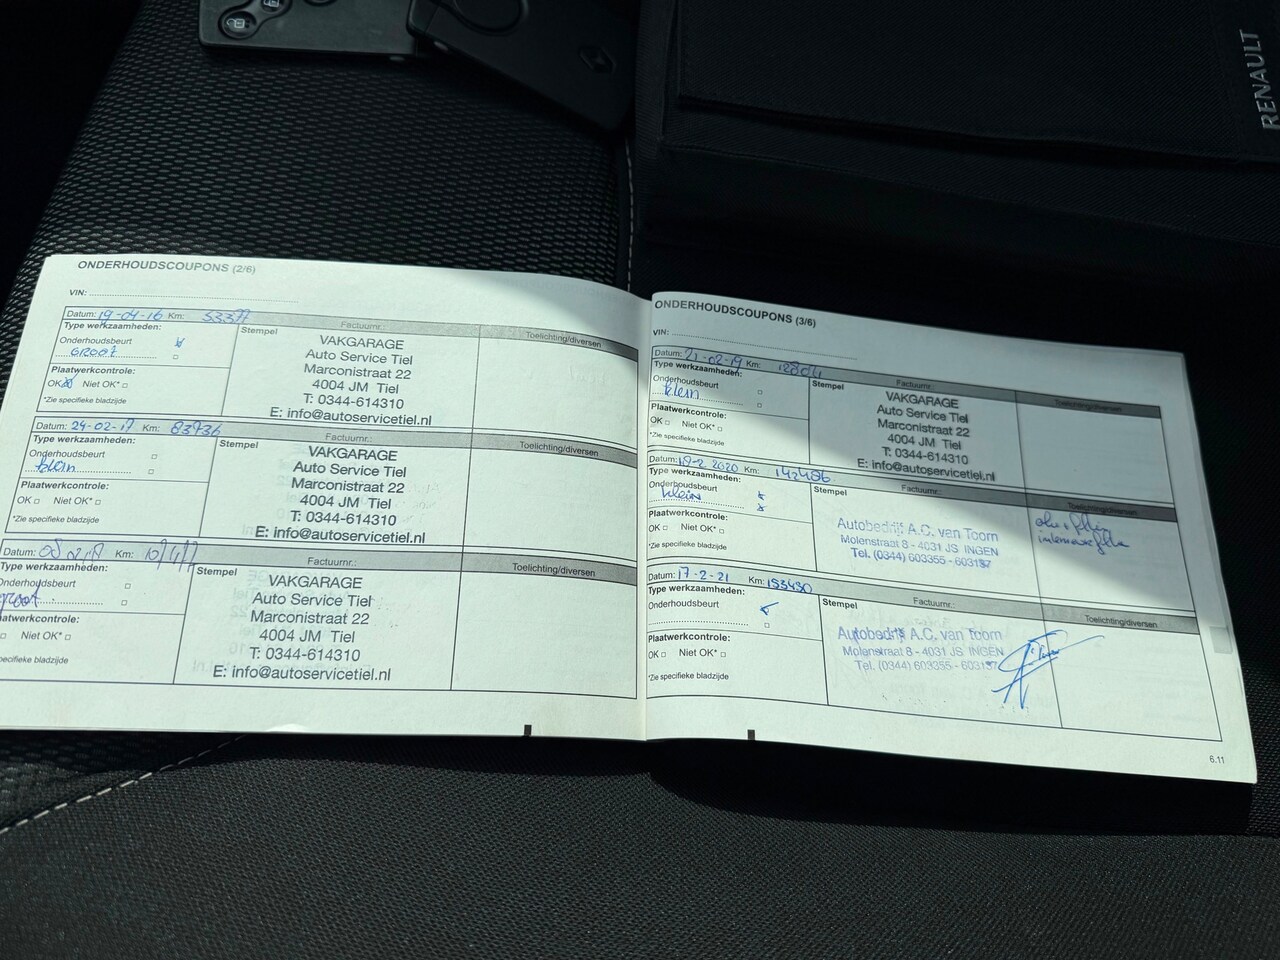 RENAULT
ONDERHOUDSCOUPONS (2/6)
VIN:
Datum: 19-04-16 Km: 53377
Type werkzaamheden:
Stempel
Factuurnr.:
Toelichting/diversen
Onderhoudsbeurt
GROOT
Plaatwerkcontrole:
OK Niet OK*
*Zie specifieke bladzijde
VAKGARAGE
Auto Service Tiel
Marconistraat 22
4004 JM Tiel
T: 0344-614310
E: info@autoservicetiel.nl
Datum: 24-02-17 Km: 83736
Type werkzaamheden:
Stempel
Factuurnr.:
Toelichting/diversen
Onderhoudsbeurt
klein
Plaatwerkcontrole:
OK Niet OK*
*Zie specifieke bladzijde
VAKGARAGE
Auto Service Tiel
Marconistraat 22
4004 JM Tiel
T: 0344-614310
E: info@autoservicetiel.nl
Datum: Km:
Type werkzaamheden:
Stempel
Factuurnr.:
Toelichting/diversen
Onderhoudsbeurt
groot
laatwerkcontrole:
Niet OK*
pecifieke bladzijde
VAKGARAGE
Auto Service Tiel
Marconistraat 22
4004 JM Tiel
T: 0344-614310
E: info@autoservicetiel.nl
ONDERHOUDSCOUPONS (3/6)
VIN:
Datum: 21-02-19 Km:
Type werkzaamheden:
Stempel
Factuurnr.:
Toelichting/diversen
Onderhoudsbeurt
klein
Plaatwerkcontrole:
OK Niet OK*
*Zie specifieke bladzijde
VAKGARAGE
Auto Service Tiel
Marconistraat 22
4004 JM Tiel
T: 0344-614310
E: info@autoservicetiel.nl
Datum: 19-2-2020 Km: 142486
Type werkzaamheden:
Stempel
Factuurnr.:
Toelichting/diversen
Onderhoudsbeurt
klein
Plaatwerkcontrole:
OK Niet OK*
*Zie specifieke bladzijde
Autobedrijf A.C. van Toorn
Molenstraat 8 - 4031 JS INGEN
Tel. (0344) 603355 - 603137
Datum: 17-2-21 Km: 153430
Type werkzaamheden:
Stempel
Factuurnr.:
Toelichting/diversen
Onderhoudsbeurt
Plaatwerkcontrole:
OK Niet OK*
*Zie specifieke bladzijde
Autobedrijf A.C. van Toorn
Molenstraat 8 - 4031 JS INGEN
Tel. (0344) 603355 - 603137
6.11